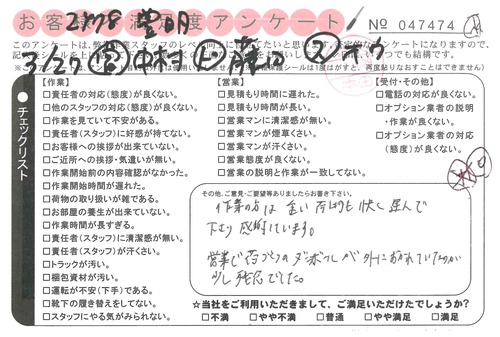 お客様満足度アンケート No 047474
2378 豊明
3/27
このアンケートは、弊社営業スタッフのレベル向上に役立てたいと思います。
【作業】
□責任者の対応(態度)が良くない。
□他のスタッフの対応(態度)が良くない。
□作業を見ていて不安がある。
□責任者(スタッフ)に好感が持てない。
□お客様への挨拶が出来ていない。
□ご近所への挨拶・気遣いが無い。
□作業開始前の内容確認がなかった。
□作業開始時間が遅れた。
□荷物の取り扱いが雑である。
□お部屋の養生が出来ていない。
□作業時間が長すぎる。
□責任者(スタッフ)に清潔感が無い。
□責任者(スタッフ)が汗くさい。
□トラックが汚い。
□梱包資材が汚い。
□運転が不安(下手)である。
□靴下の履き替えをしてない。
□スタッフにやる気がみられない。
【営業】
□見積もり時間に遅れた。
□見積もり時間が長い。
□営業マンに清潔感が無い。
□営業マンが煙草くさい。
□営業マンが汗くさい。
□営業態度が良くない。
□営業の説明と作業が一致してない。
【受付・その他】
□電話の対応が良くない。
□オプション業者の説明
・作業が良くない。
□オプション業者の対応
(態度)が良くない。
チェックリスト
その他、ご意見・ご要望等ありましたらお書き下さい。
作業の方は重い荷物も快く運んで
下さり感謝しています。
営業で荷づくりのダンボールが外におかれていたのが
少し残念でした。
★当社をご利用いただきまして、ご満足いただけたでしょうか?
□不満 □やや不満 □普通 □やや満足 □満足